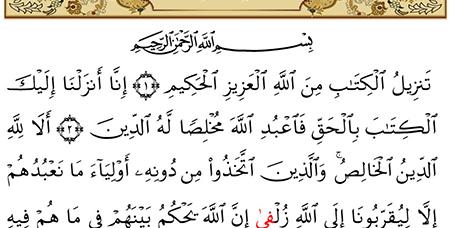 بِسْمِ اللَّهِ الرَّحْمَٰنِ الرَّحِيمِ
تَنزِيلُ الْكِتَابِ مِنَ اللَّهِ الْعَزِيزِ الْحَكِيمِ ﴿١﴾ إِنَّا أَنزَلْنَا إِلَيْكَ
الْكِتَابَ بِالْحَقِّ فَاعْبُدِ اللَّهَ مُخْلِصًا لَّهُ الدِّينَ ﴿٢﴾ أَلَا لِلَّهِ
الدِّينُ الْخَالِصُ ۚ وَالَّذِينَ اتَّخَذُوا مِن دُونِهِ أَوْلِيَاءَ مَا نَعْبُدُهُمْ
إِلَّا لِيُقَرِّبُونَا إِلَى اللَّهِ زُلْفَىٰ إِنَّ اللَّهَ يَحْكُمُ بَيْنَهُمْ فِي مَا هُمْ فِيهِ